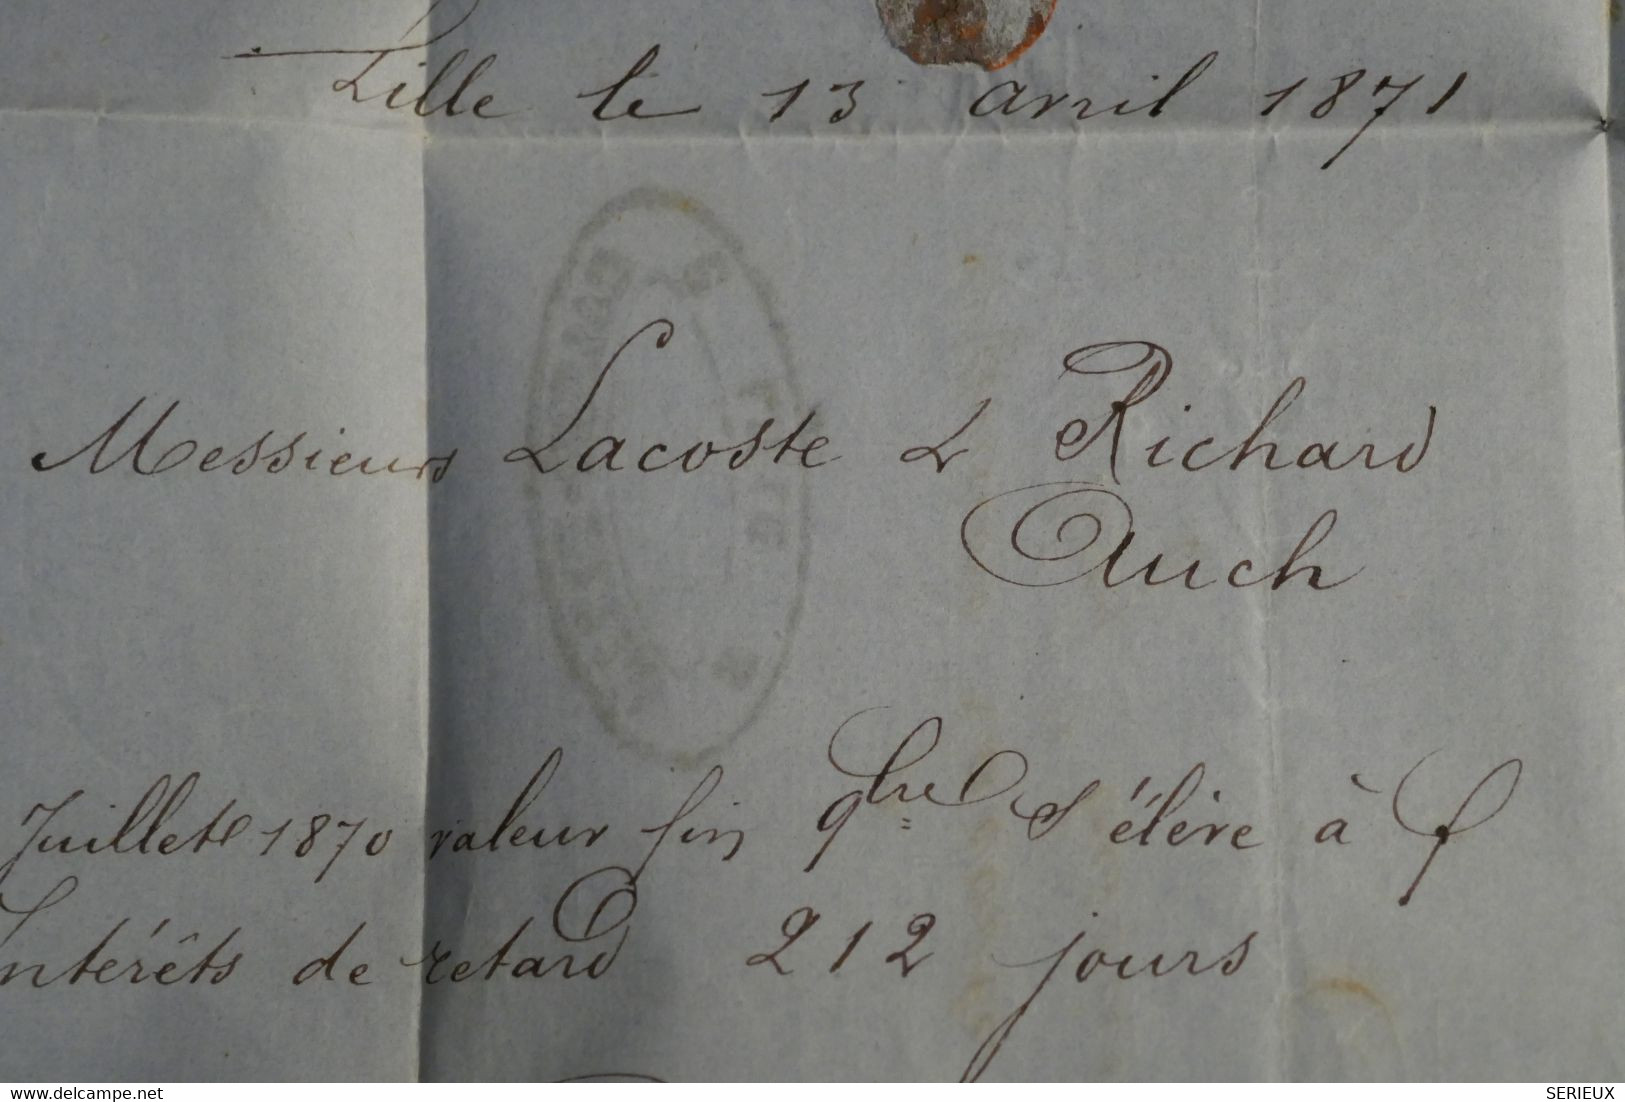 Lille le 13 avril 1871
Messieurs Lacoste & Richard
Auch
Juillet 1870 valeur fin 9bre s'élève à f
Intérêts de retard 212 jours
delcampe.net
SERIEUX